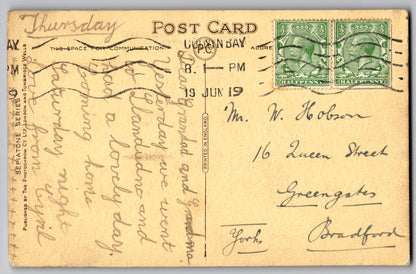 Thursday
POST CARD
THIS SPACE FOR COMMUNICATION.
COLWYN BAY
8. — PM
19 JUN 19
HALFPENNY
HALFPENNY
Dear grandad and grandma
Yesterday we went
to Llandudno and
had a lovely day.
coming home
Saturday night
love from Cyril
Mr. W. Hobson
16 Queen Street
Greengates
Bradford
Yorks
PRINTED IN ENGLAND
SEPIATONE SERIES
PUBLISHED BY THE PHOTOCHROM CO. LTD. LONDON AND TUNBRIDGE WELLS